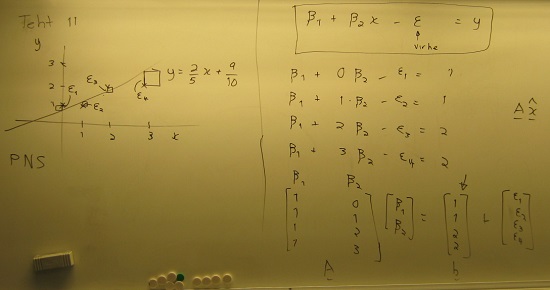 Teht 11
y
3
2
1
ε₃
ε₁
ε₂
ε₄
y = 2/5 x + 9/10
1 2 3 x
PNS
β₁ + β₂ x - ε = y
virhe
β₁ + 0 β₂ - ε₁ = 1
β₁ + 1·β₂ - ε₂ = 1
β₁ + 2 β₂ - ε₃ = 2
β₁ + 3 β₂ - ε₄ = 2
A x̂
β₁ β₂
[1 0; 1 1; 1 2; 1 3] [β₁; β₂] = [1; 1; 2; 2] + [ε₁; ε₂; ε₃; ε₄]
A b